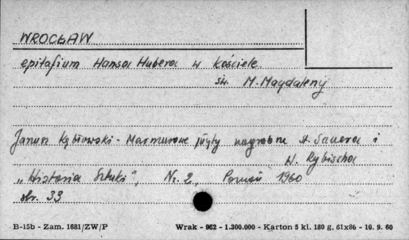 WROCŁAW
epitafium Hansa Hubera w kościele
św. M. Magdaleny
Janusz Kębłowski - Marmurowe płyty nagrobne St. Sauera i
H. Rybischa
"Historia Sztuki", Nr. 2, Poznań 1960
str. 33
B-15b - Zam. 1681/ZW/P Wrak - 962 - 1.300.000 - Karton 5 kl. 180 g, 61x86 - 10. 9. 60